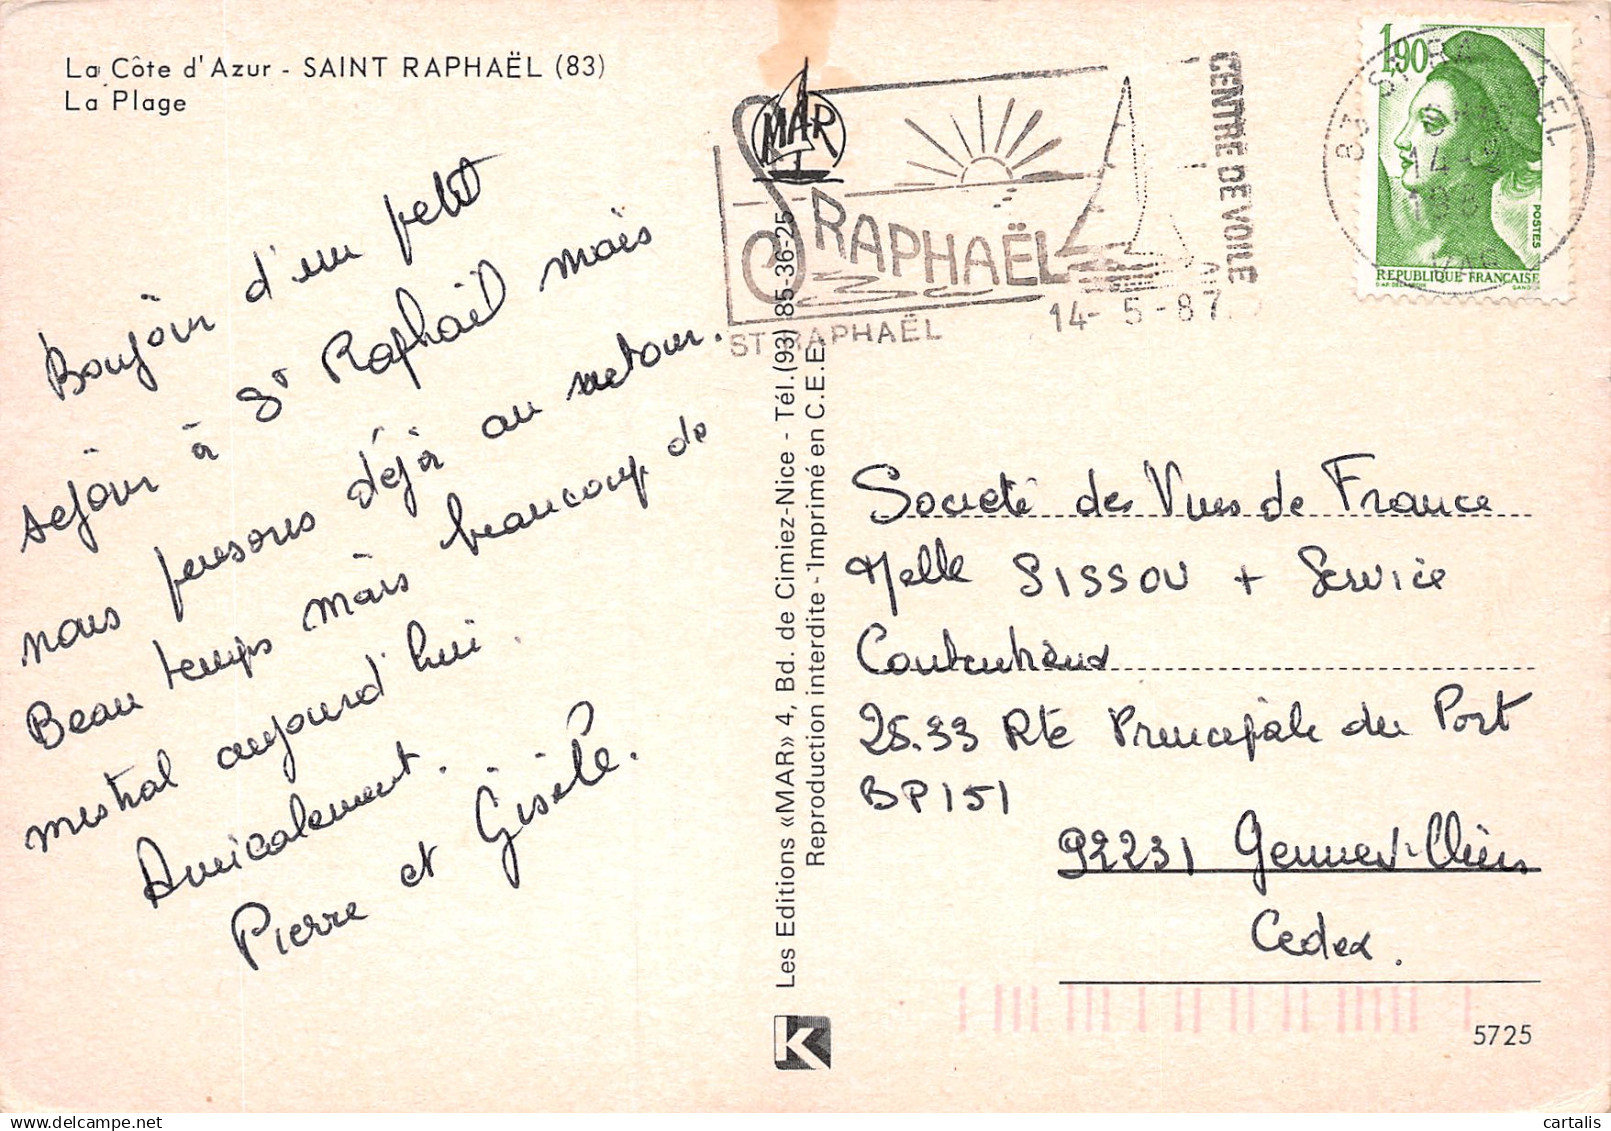 La Côte d'Azur - SAINT RAPHAËL (83)
La Plage
Bonjour d'un petit
séjour à St Raphaël mais
nous pensons déjà au retour.
Beau temps mais beaucoup de
mistral aujourd'hui.
Amicalement.
Pierre et Gisèle.
MAR
ST RAPHAËL
CENTRE DE VOILE
ST RAPHAËL
14-5-87
83 ST RAPHAEL
14-5
198
VAR
1,90
POSTES
REPUBLIQUE FRANÇAISE
Les Editions «MAR» 4, Bd. de Cimiez-Nice - Tél. (93) 85-36-25
Reproduction interdite - Imprimé en C.E.E.
Societé des Vues de France
Melle SISSOU + Service
Contentieux
25.33 Rte Principale du Port
BP151
92231 Gennevilliers
Cedex.
K
5725
cartalis
delcampe.net